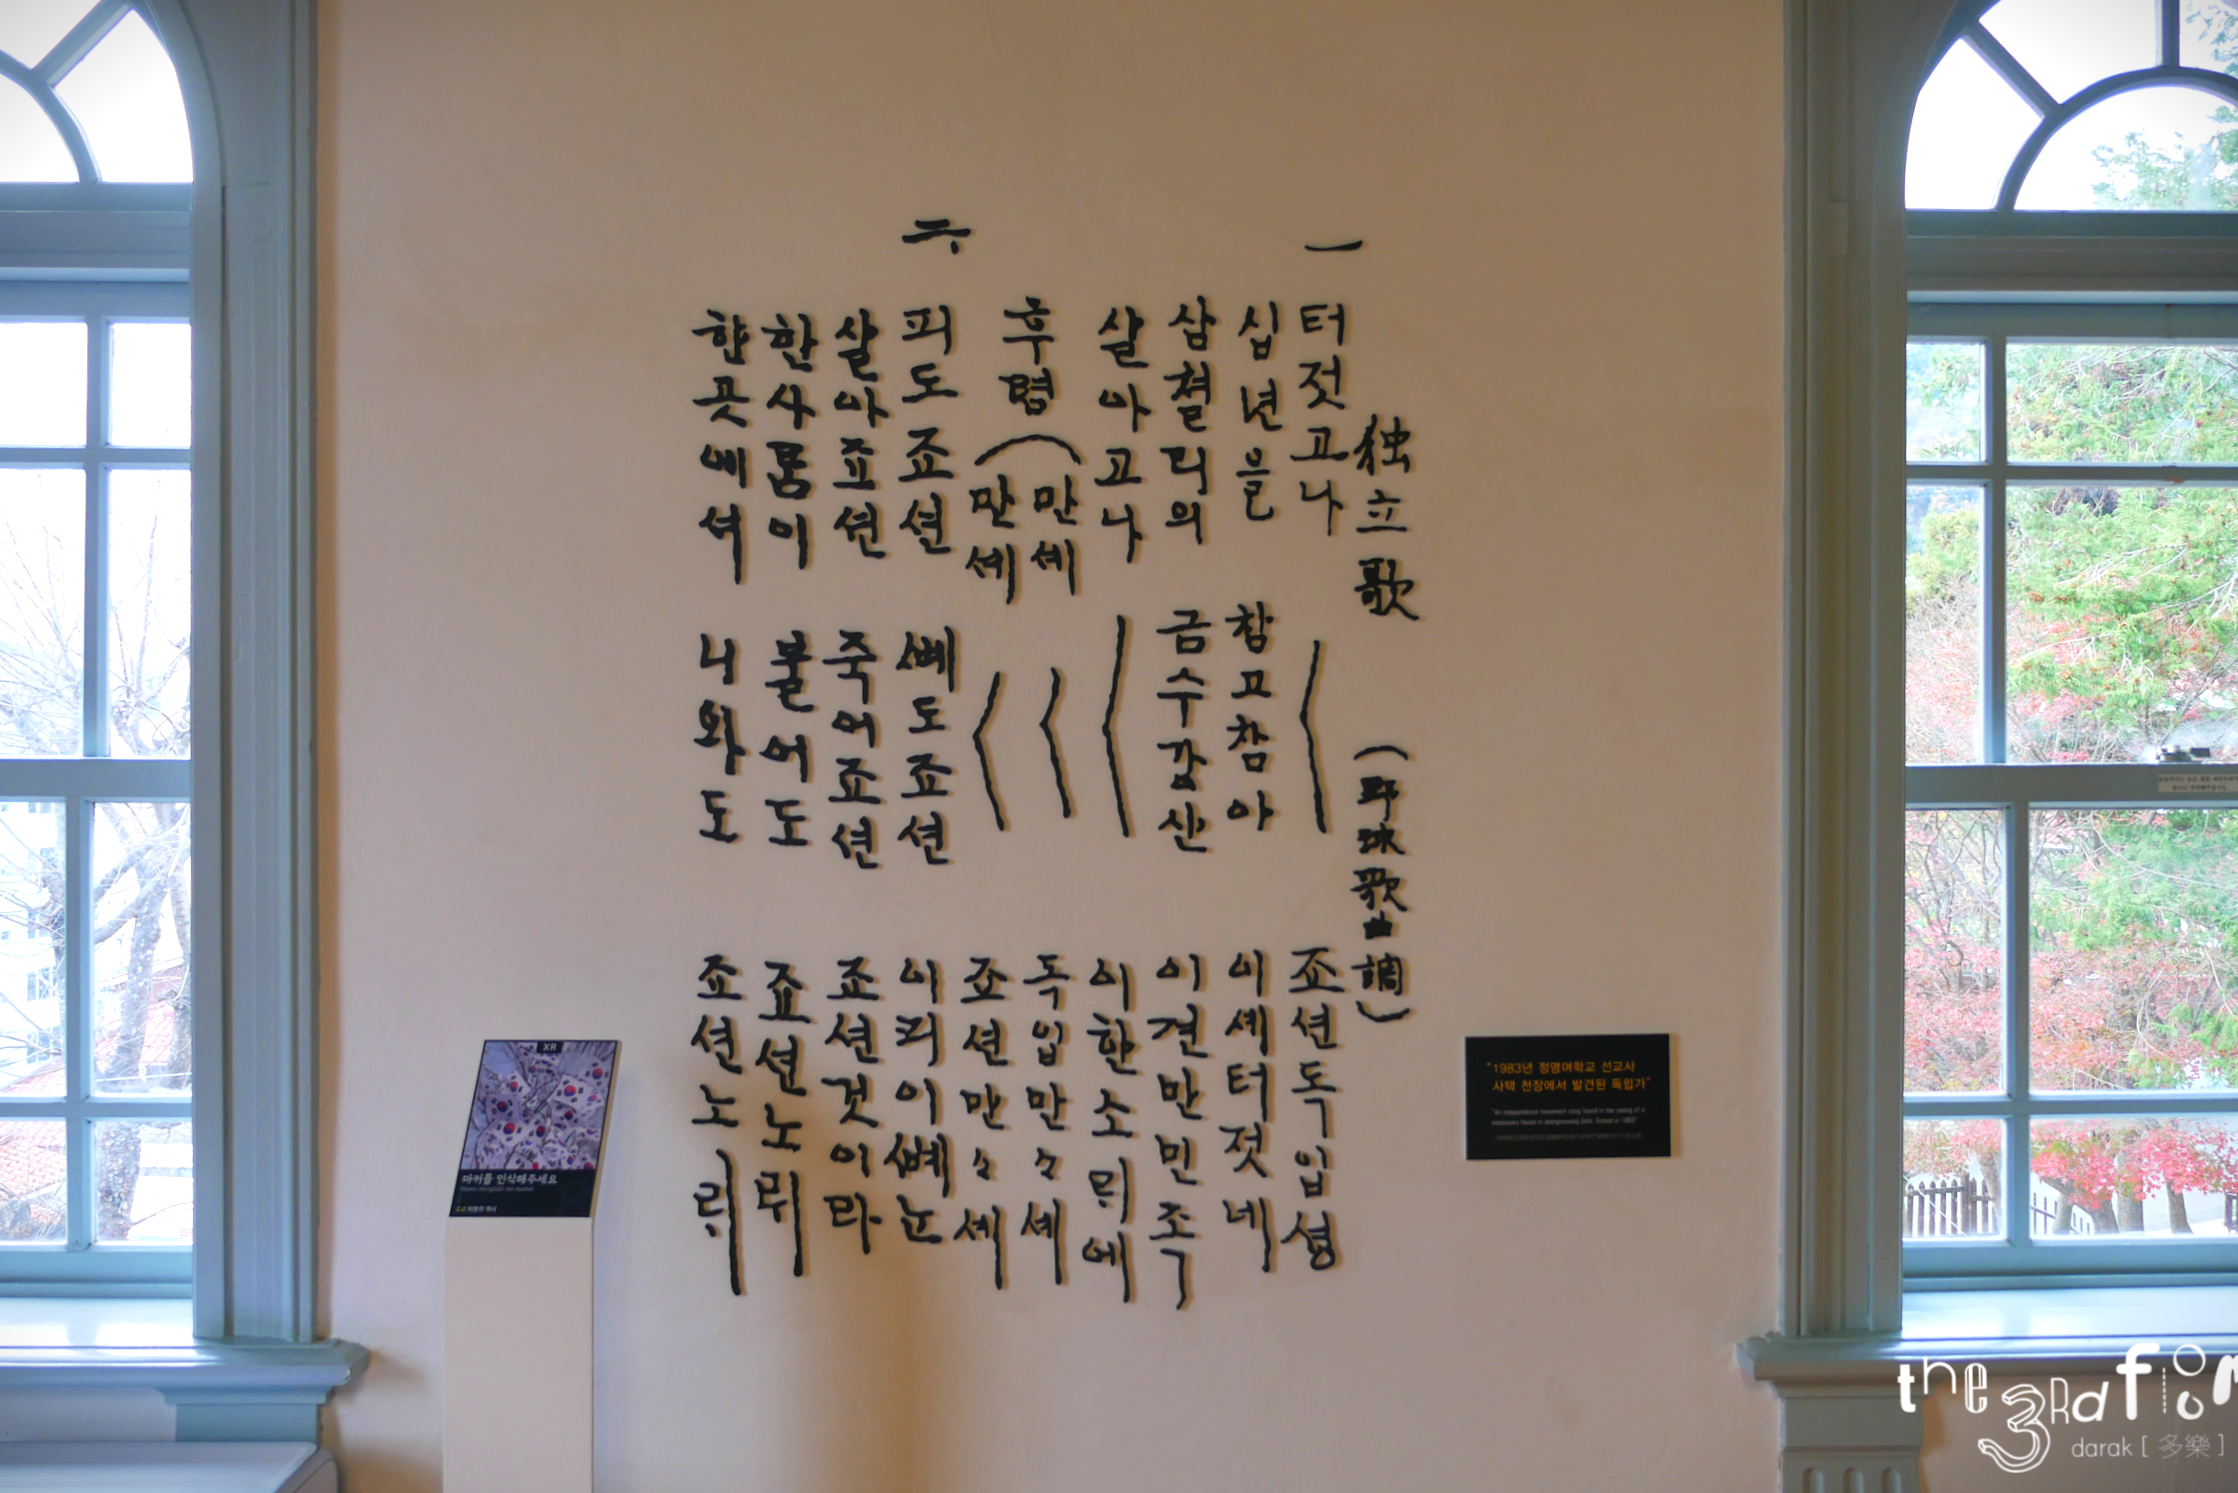 独立歌 (野球歌曲調)
一
터젓고나 죠션독입셩
십년을 참고참아 이셰터젓네
삼쳘리의 금수강산 이견만민족
살아고나 이한소릐에
후렴 만세 독입만々세
만셰 죠션만々세
二
피도죠션 뼈도죠션 이리이뼈는
살아죠션 죽어죠션 죠션것이라
한사람이 불어도 죠션노릐
한곳에셔 나와도 죠션노릐
"1983년 정명여학교 선교사
사택 천장에서 발견된 독립가"
"An independence movement song found in the ceiling of a
missionary house in Jeongmyeong Girls' School in 1983"
XR
마커를 인식해주세요
the 3rd floor
darak [ 多樂 ]